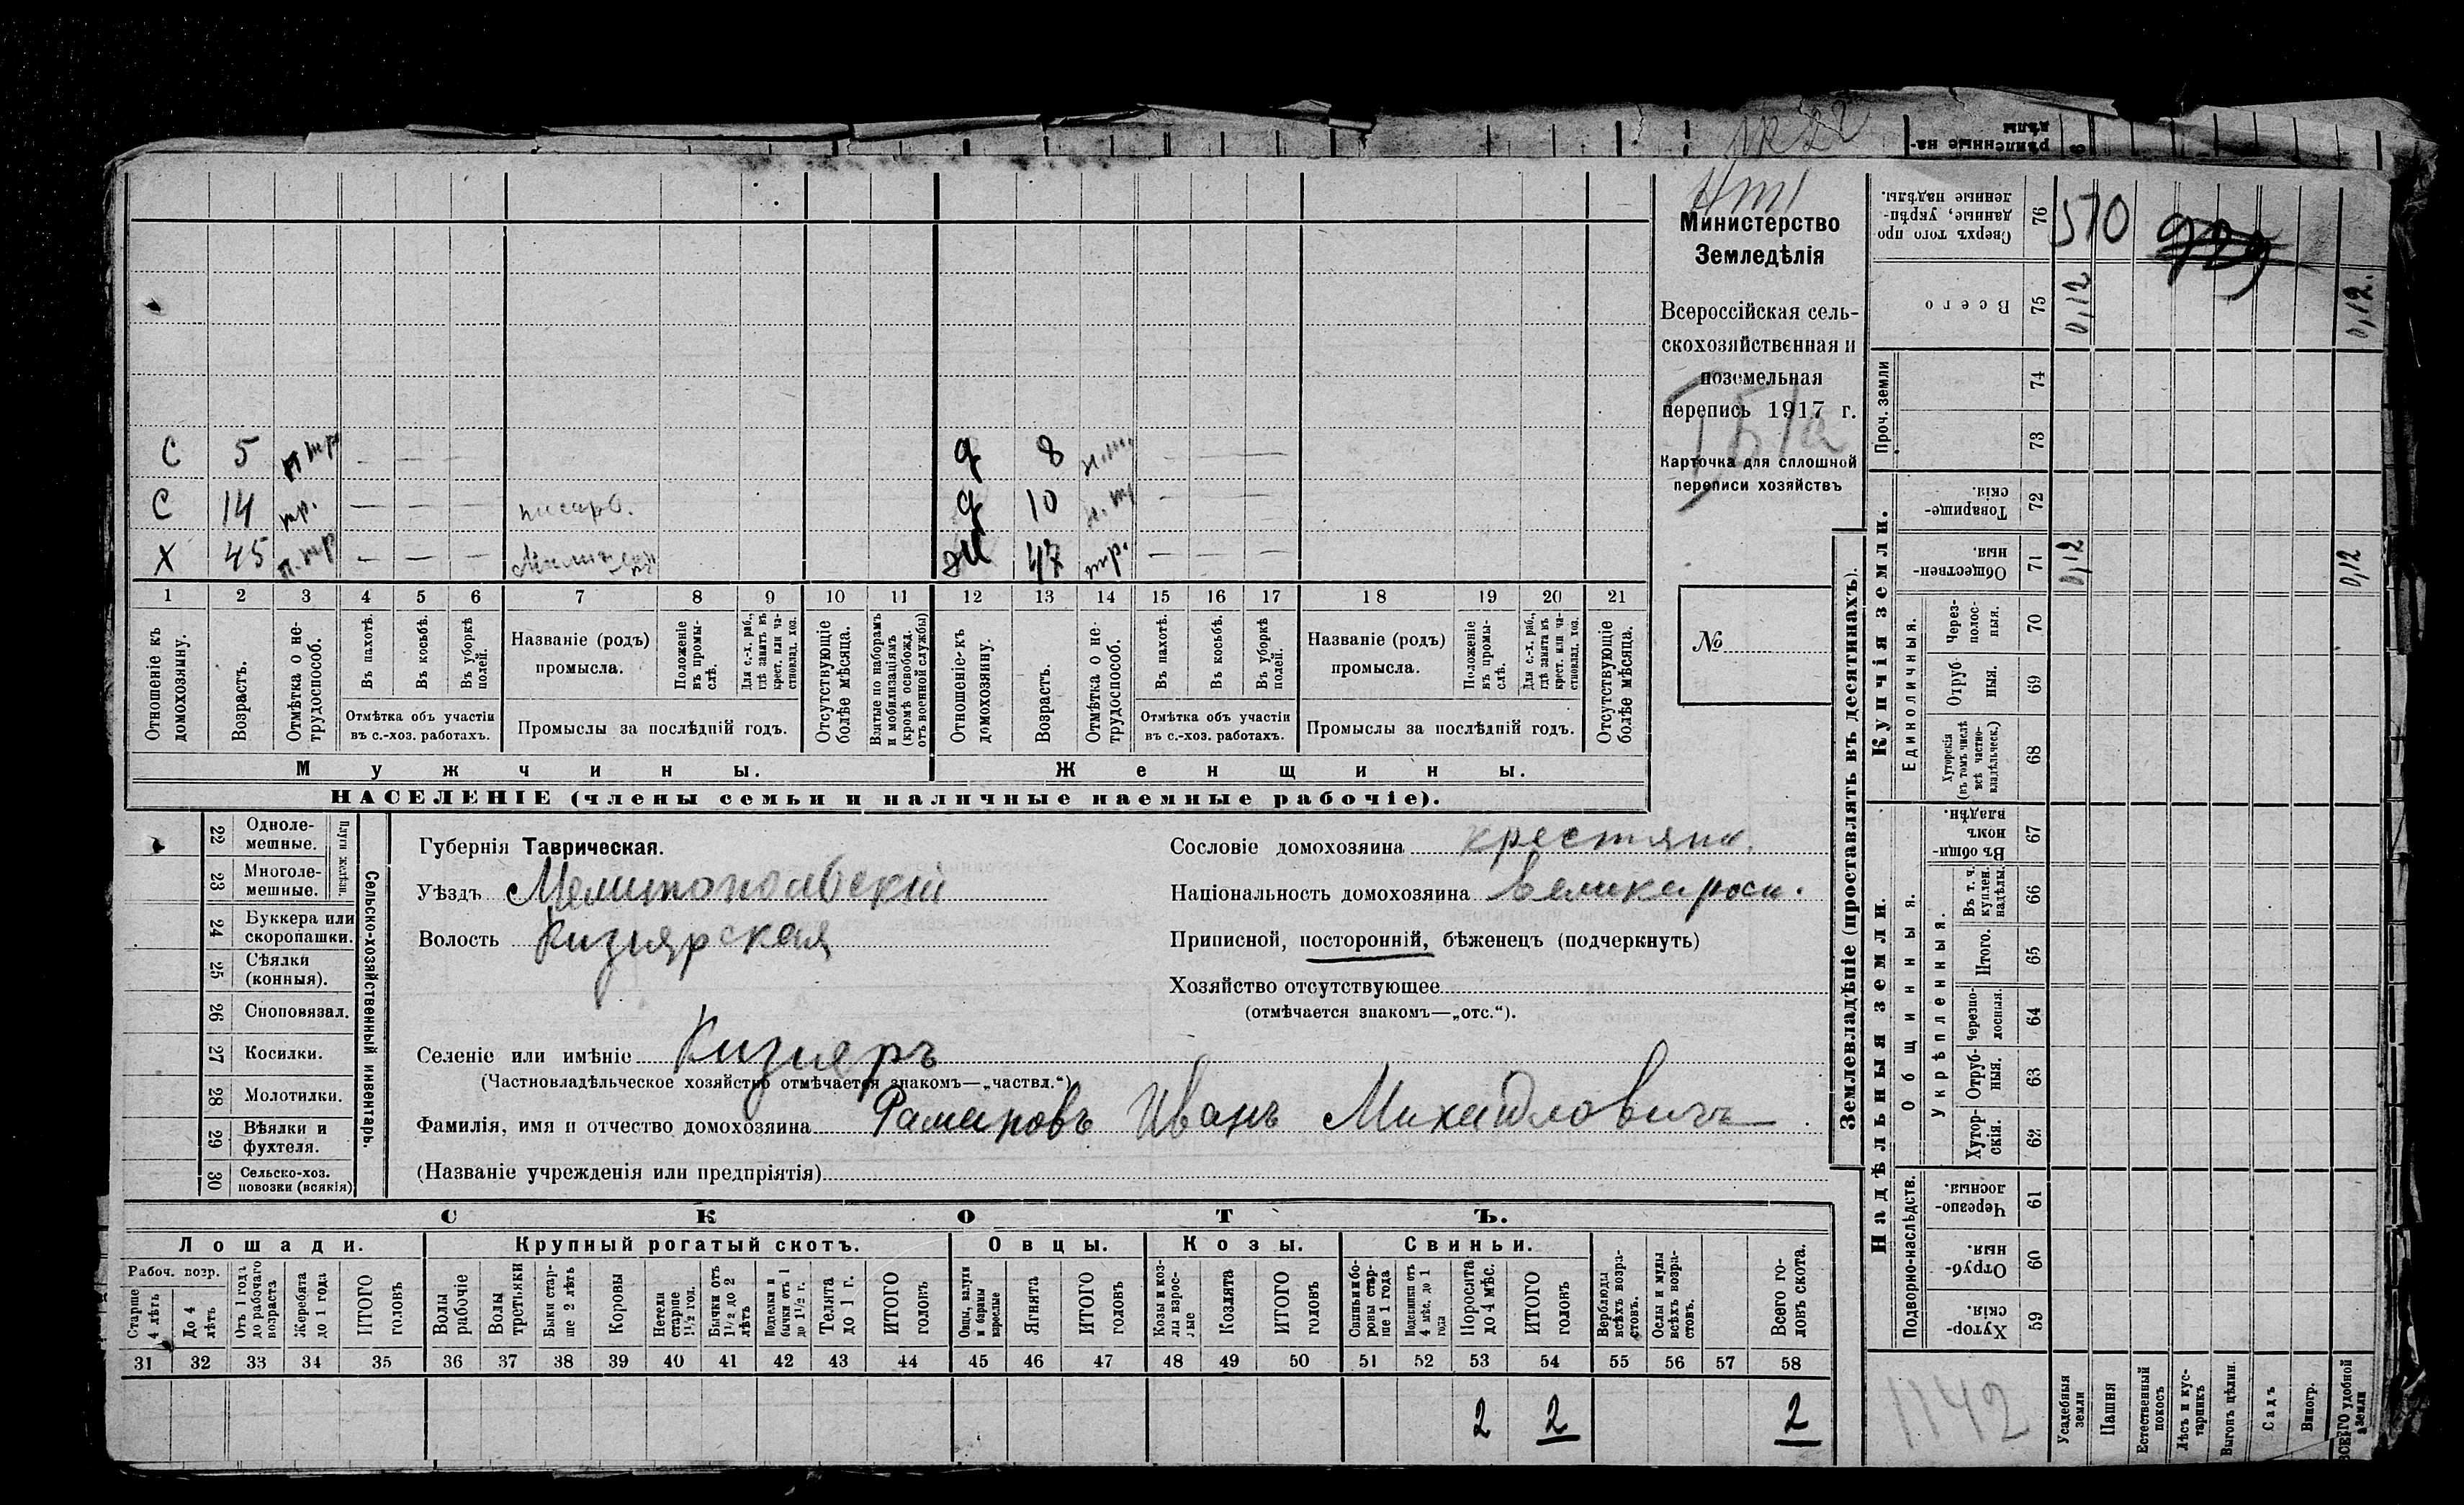 рѣпленные на-
дѣлы
Министерство
Земледѣлія
Всероссійская сель-
скохозяйственная и
поземельная
перепись 1917 г.
Карточка для сплошной
переписи хозяйствъ
№
С 5 н тр — — — д 8 н.т. — — —
С 14 тр. — — — писарь. д 10 н. т. — — —
Х 45 п. тр — — — ж 47 тр. — — —
1 2 3 4 5 6 7 8 9 10 11 12 13 14 15 16 17 18 19 20 21
Отношеніе къ домохозяину.
Возрастъ.
Отмѣтка о не-трудоспособ.
Въ пахотѣ.
Въ косьбѣ.
Въ уборкѣ полей.
Отмѣтка объ участіи въ с.-хоз. работахъ.
Названіе (родъ) промысла.
Положеніе въ промы-слѣ.
Для с.-х. раб., гдѣ занятъ въ крест. или ча-стновлад. хоз.
Промыслы за послѣдній годъ.
Отсутствующіе болѣе мѣсяца.
Взятые по наборамъ и мобилизаціямъ (кромѣ освобожд. отъ военной службы)
Отношеніе къ домохозяину.
Возрастъ.
Отмѣтка о не-трудоспособ.
Въ пахотѣ.
Въ косьбѣ.
Въ уборкѣ полей.
Отмѣтка объ участіи въ с.-хоз. работахъ.
Названіе (родъ) промысла.
Положеніе въ промы-слѣ.
Для с.-х. раб., гдѣ занята въ крест. или ча-стновлад. хоз.
Промыслы за послѣдній годъ.
Отсутствующіе болѣе мѣсяца.
Мужчины. Женщины.
НАСЕЛЕНІЕ (члены семьи и наличные наемные рабочіе).
22 Одноле-мешные.
23 Многоле-мешные.
Плуги желѣзн.
24 Буккера или скоропашки.
25 Сѣялки (конныя).
26 Сноповязал.
27 Косилки.
28 Молотилки.
29 Вѣялки и фухтеля.
30 Сельско-хоз. повозки (всякія)
Сельско-хозяйственный инвентарь.
Губернія Таврическая.
Уѣздъ Мелитопольскій
Волость Кизіярская
Селеніе или имѣніе Кизіяръ
(Частновладѣльческое хозяйство отмѣчается знакомъ—„частвл.“)
Фамилія, имя и отчество домохозяина Рамановъ Иванъ Михайловичъ
(Названіе учрежденія или предпріятія)
Сословіе домохозяина крестянъ.
Національность домохозяина великарос.
Приписной, посторонній, бѣженецъ (подчеркнуть)
Хозяйство отсутствующее
(отмѣчается знакомъ—„отс.“).
СКОТЪ.
Лошади. Крупный рогатый скотъ. Овцы. Козы. Свиньи.
Рабоч. возр.
Старше 4 лѣтъ
До 4 лѣтъ
Отъ 1 года до рабочаго возраста
Жеребята до 1 года
ИТОГО головъ
Волы рабочіе
Волы третьяки
Быки стар-ше 2 лѣтъ
Коровы
Нетели старше 1½ год.
Бычки отъ 1½ до 2 лѣтъ
Подтелки и бычки отъ 1 до 1½ г.
Телята до 1 г.
ИТОГО головъ
Овцы, валухи и бараны взрослые
Ягнята
ИТОГО головъ
Козы и коз-лы взрос-лые
Козлята
ИТОГО головъ
Свиньи и бо-ровы стар-ше 1 года
Подсвинки отъ 4 мѣс. до 1 года
Поросята до 4 мѣс.
ИТОГО головъ
Верблюды всѣхъ возра-стовъ.
Ослы и мулы всѣхъ возра-стовъ.
Всего го-ловъ скота.
31 32 33 34 35 36 37 38 39 40 41 42 43 44 45 46 47 48 49 50 51 52 53 54 55 56 57 58
2 2 2
Землевладѣніе (проставлять въ десятинахъ).
Сверхъ того про-данные, укрѣп-ленные надѣлы. 76 510
Всего 75 0,12 0,12.
Проч. земли
74
73
Купчія земли.
Товарище-скія 72
Обществен-ныя. 71 0,12 0,12
Единоличныя.
Через-полос-ныя. 70
Отруб-ныя. 69
Хуторскія (въ томъ числѣ всѣ частно-владѣльческ.) 68
Надѣльныя земли.
Общинныя.
Въ общин-номъ владѣн. 67
Укрѣпленныя.
Въ т. ч. куплен. надѣлы. 66
Итого. 65
Черезпо-лосныя. 64
Отруб-ныя. 63
Хутор-скія. 62
Подворно-наслѣдств.
Черезпо-лосныя 61
Отруб-ныя. 60
Хутор-скія. 59
1142
Усадебныя земли
Пашня
Естественный покосъ
Лѣсъ и кус-тарникъ
Выгонъ цѣлин.
Садъ
Виногр.
ВСЕГО удобной земли